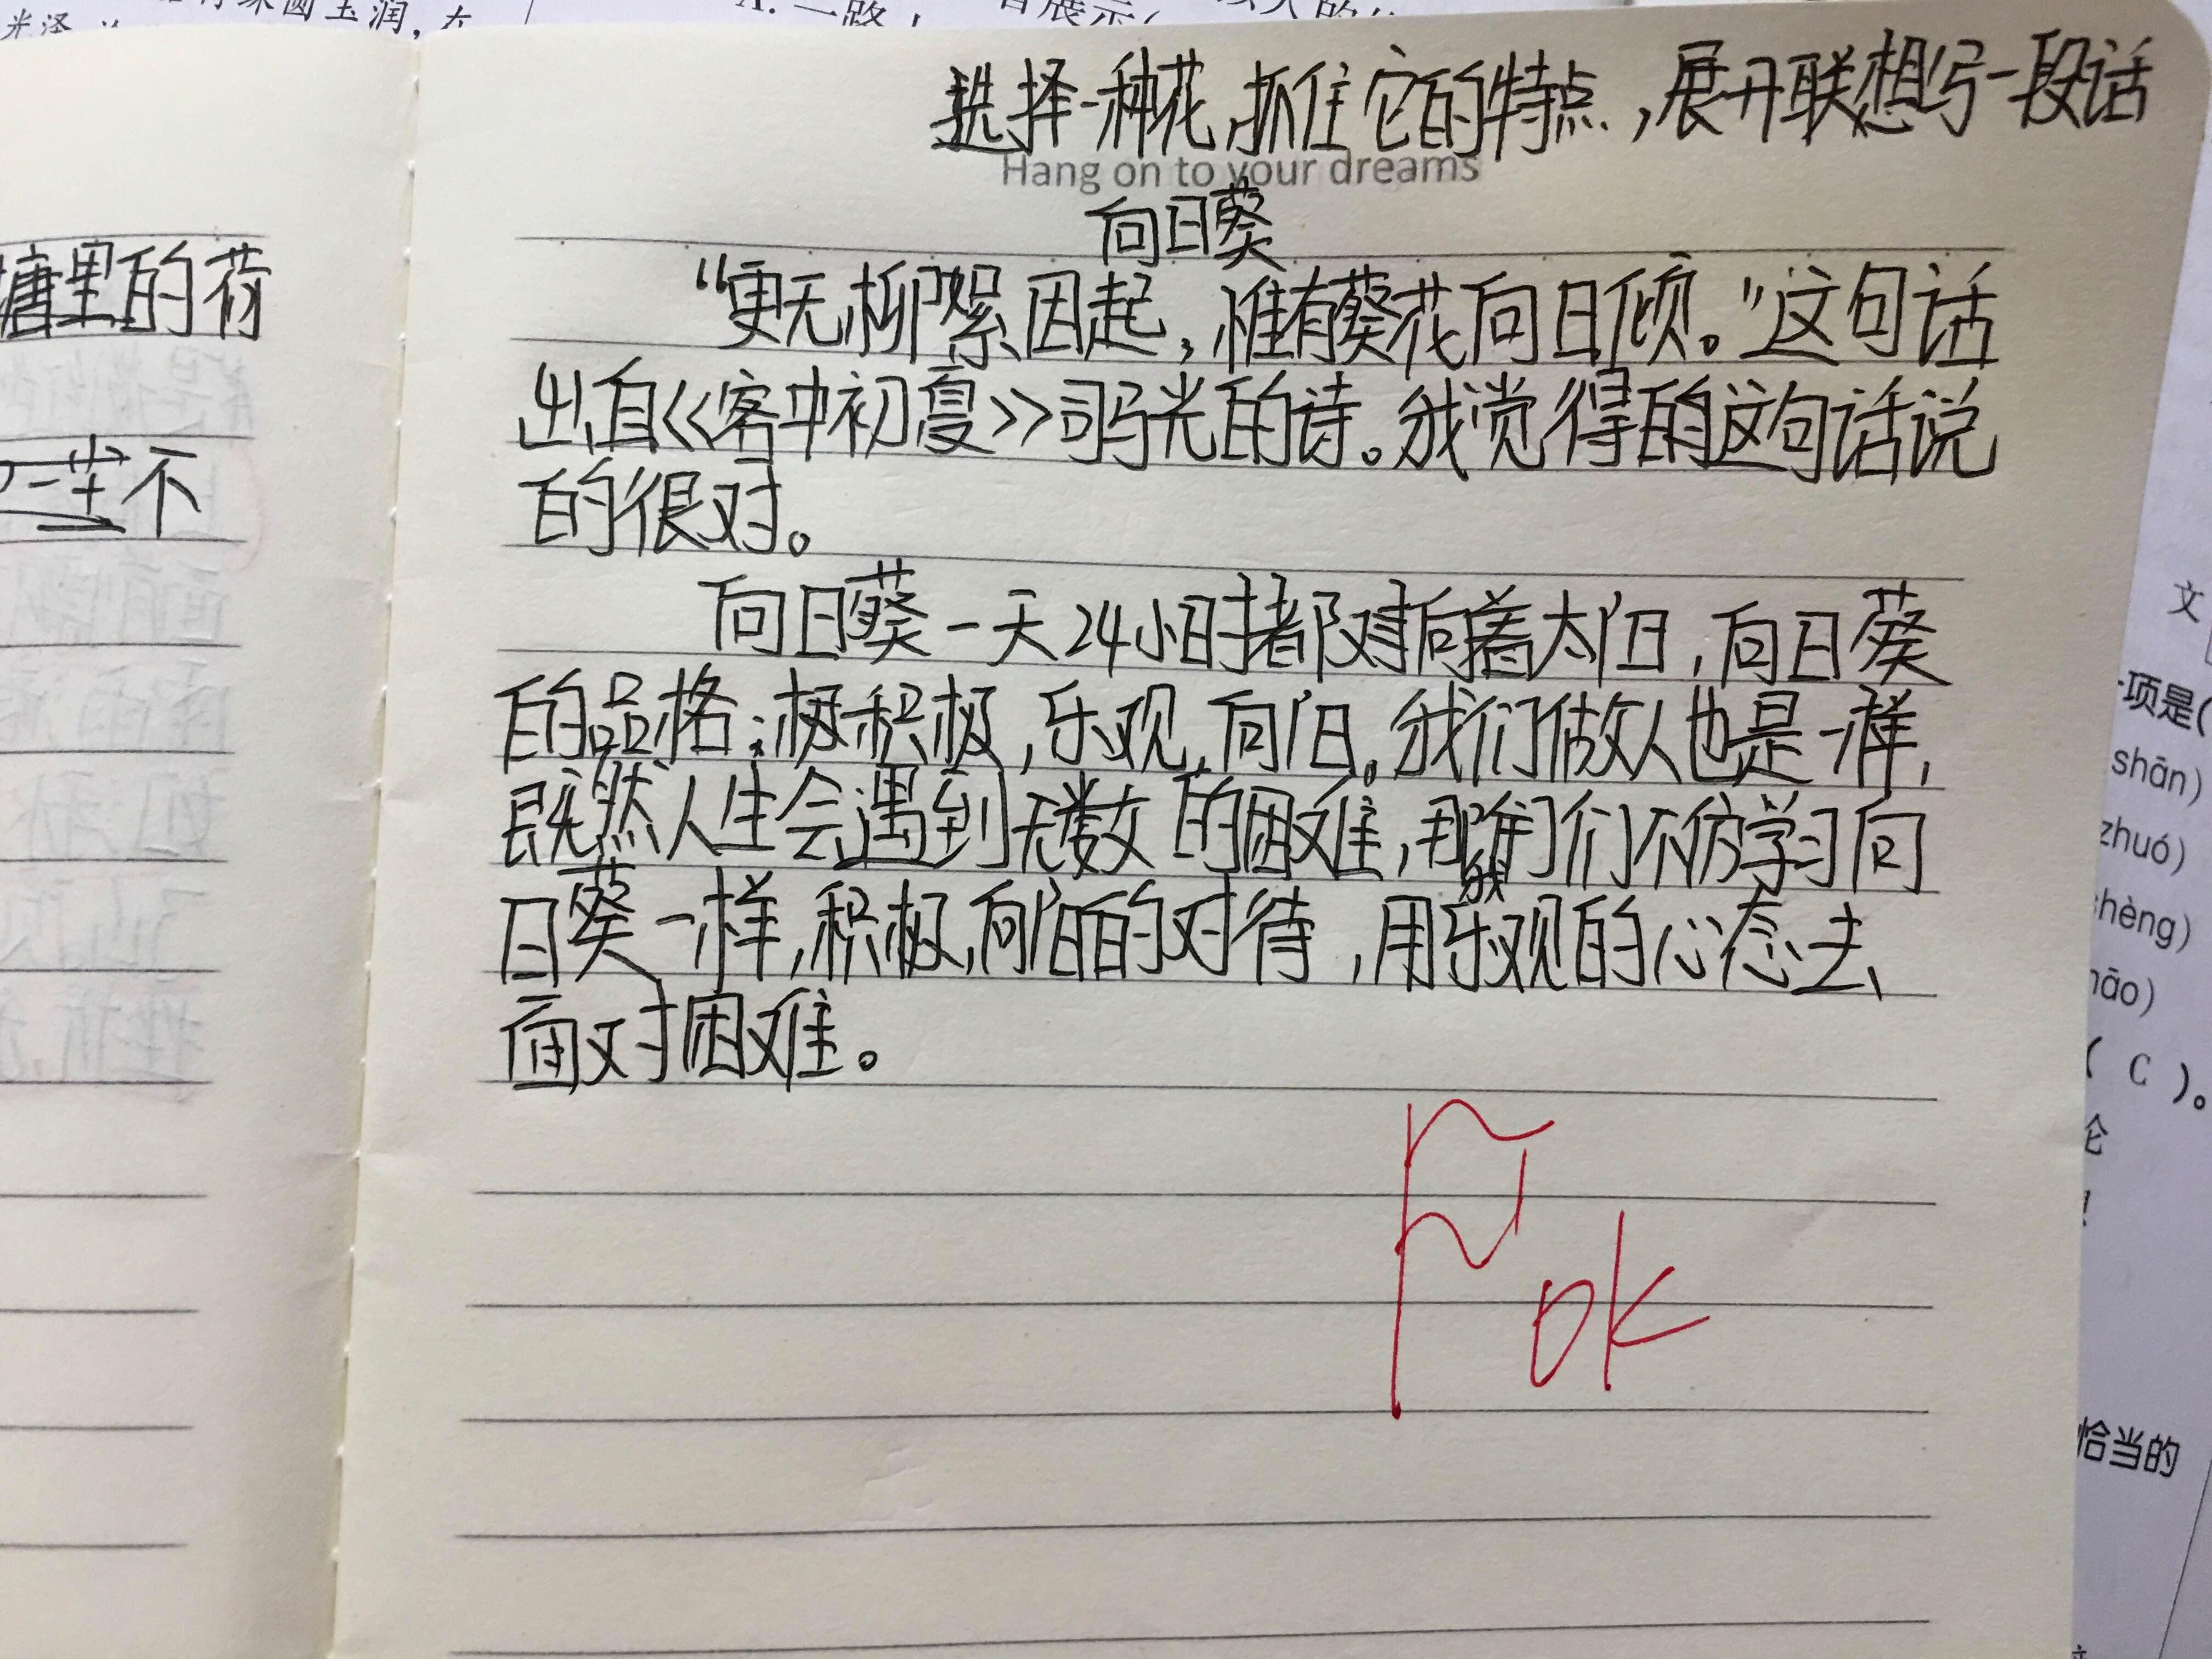 选择一种花,抓住它的特点,展开联想写一段话
Hang on to your dreams
向日葵
“更无柳絮因起,惟有葵花向日倾。”这句话
出自《客中初夏》司马光的诗。我觉得的这句话说
的很对。
向日葵一天24小时都对向着太阳,向日葵
的品格:极积极,乐观,向阳。我们做人也是一样,
既然人生会遇到无数的困难,那我们不仿学习向
日葵一样,积极,向阳的对待,用乐观的心态去
面对困难。
ok
塘里的荷
一尘不
文
一项是(
shān)
zhuó)
hèng)
āo)
( C )。
论
恰当的